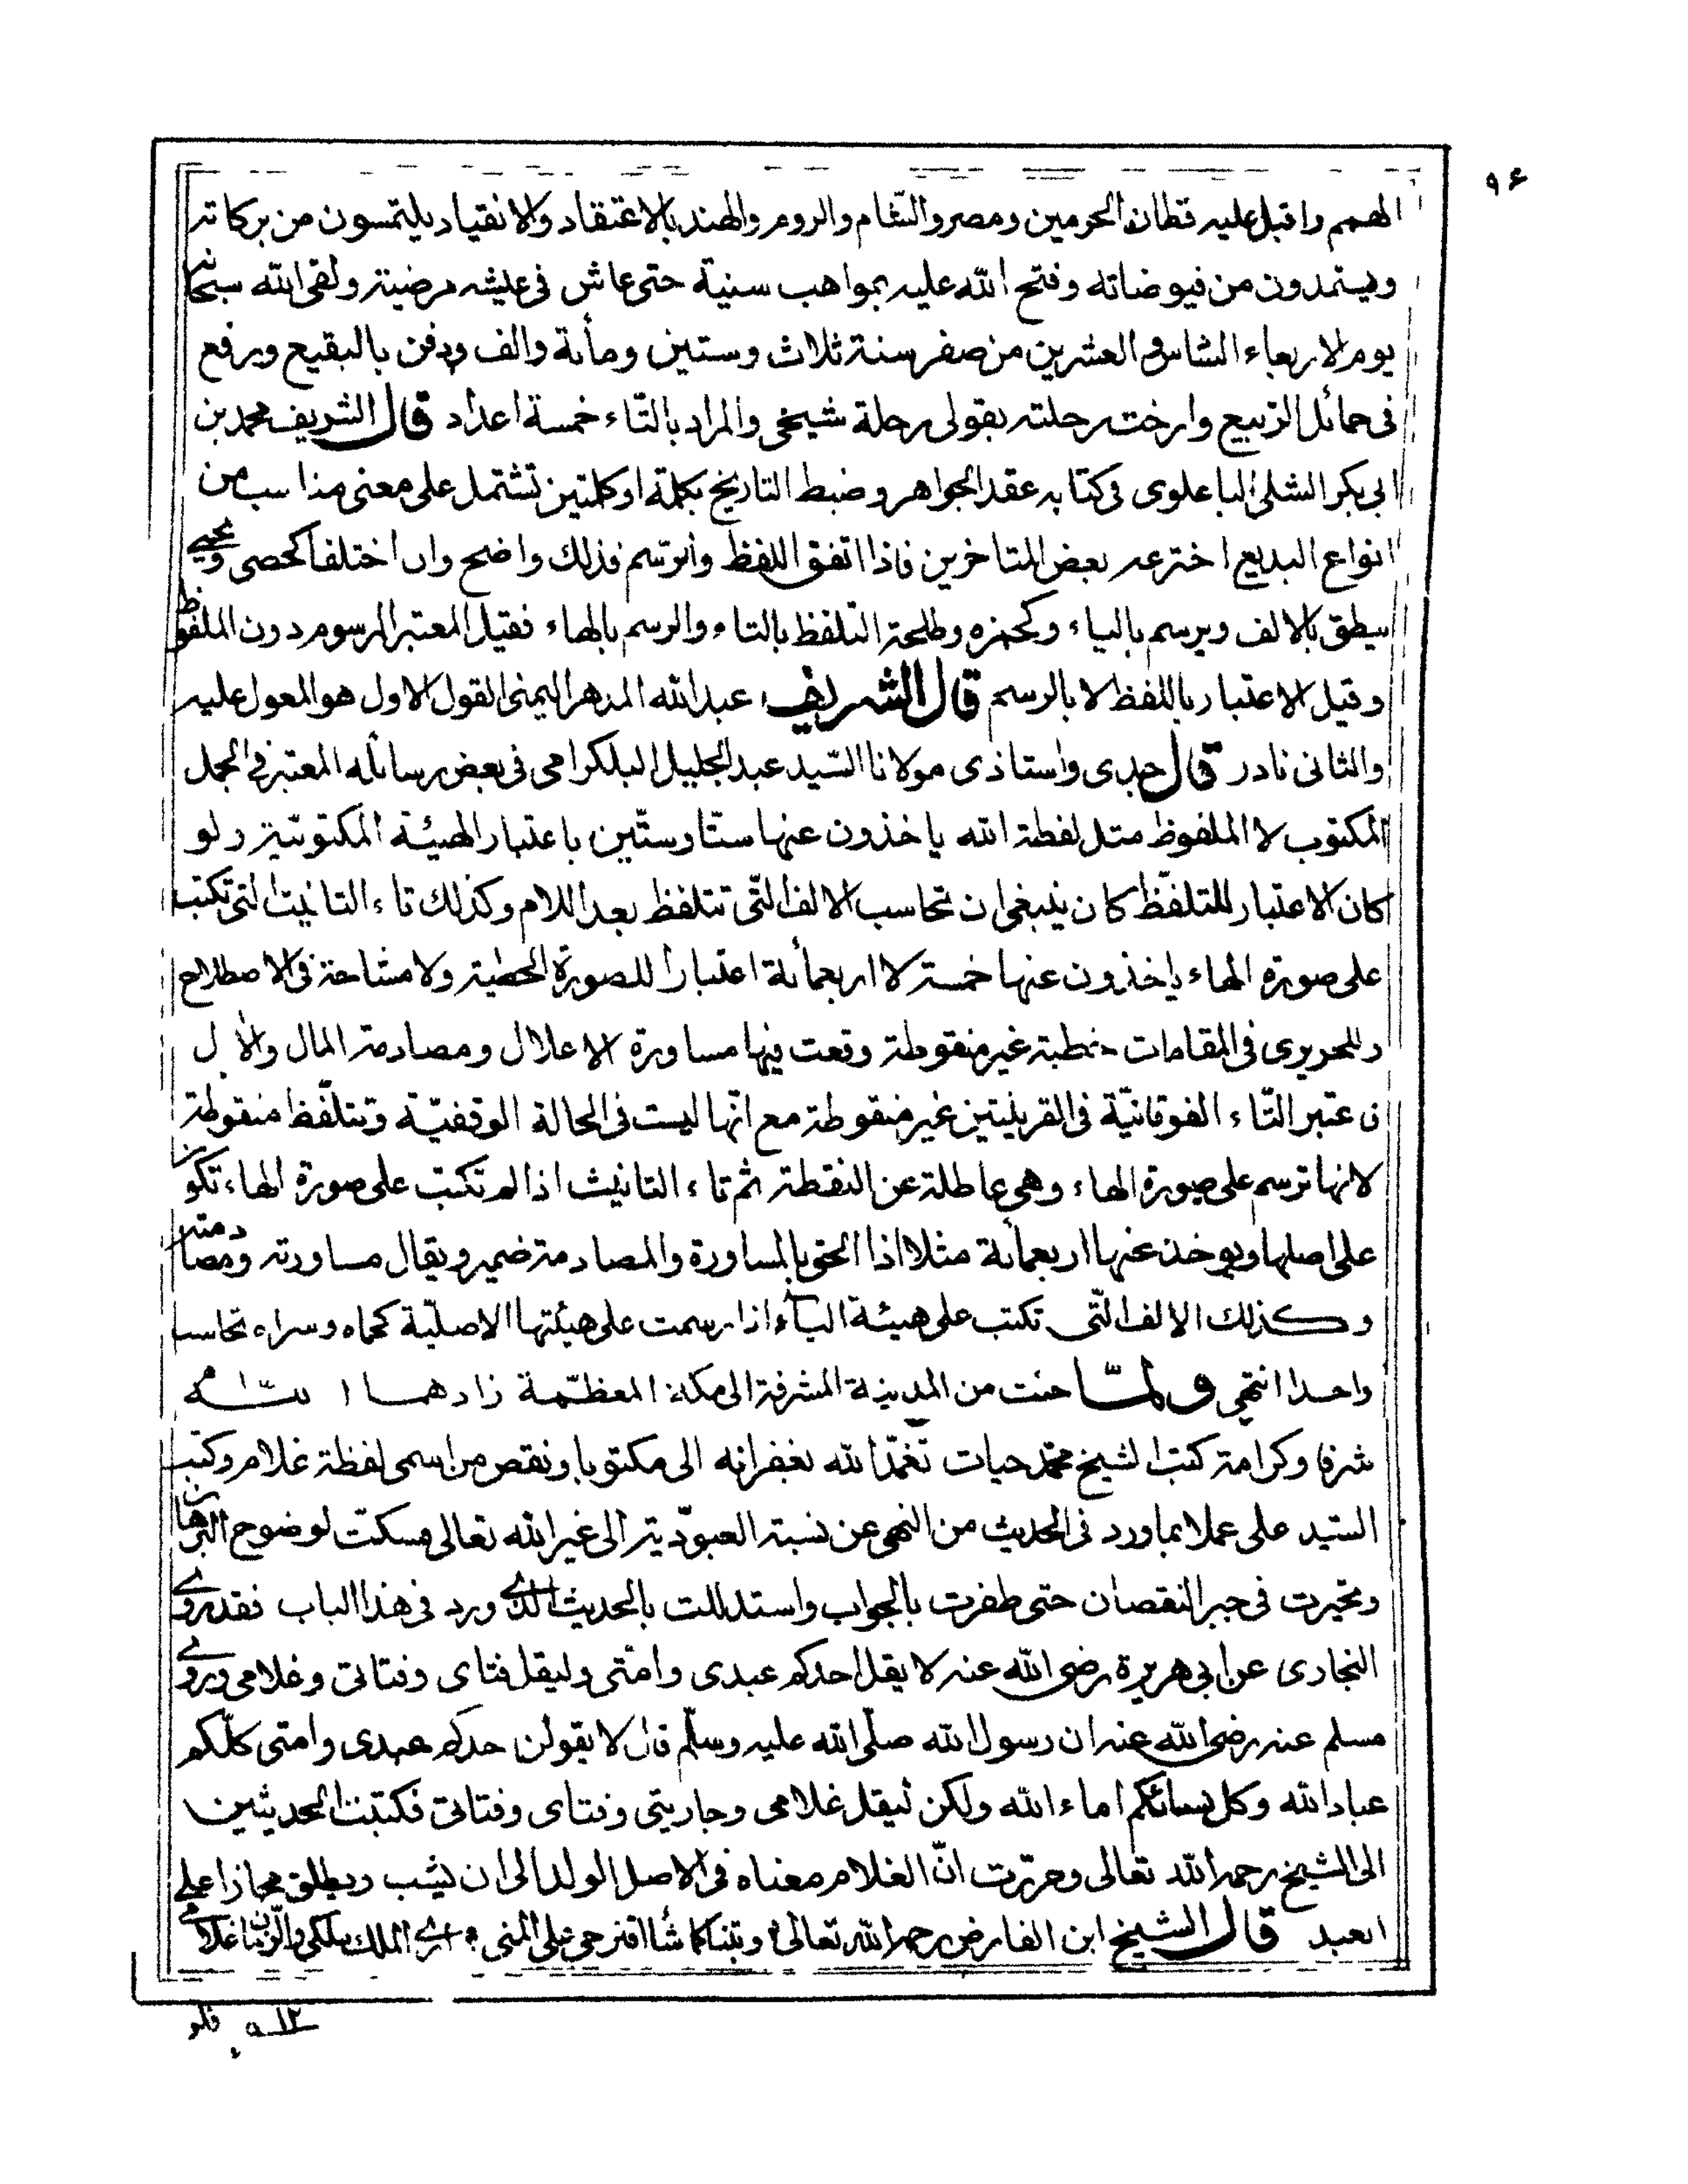 ٩٤
الهمم واقبل عليه قطان الحرمين ومصر والشام والروم والهند بالاعتقاد والانقياد يلتمسون من بركاته
ويستمدون من فيوضاته وفتح الله عليه بمواهب سنية حتى عاش فى عيشه مرضية ولقى الله سبحانه
يوم الاربعاء السادس والعشرين من صفر سنة ثلاث وستين ومأية والف ودفن بالبقيع ورفع
فى حمائل الربيع وارخت رحلته بقولى رحلة شيخى والمراد بالتاء خمسة اعداد قال الشريف محمد بن
ابى بكر الشلى الباعلوى فى كتابه عقد الجواهر وضبط التاريخ بكلمة او كلمتين تشتمل على معنى مناسب من
انواع البديع اخترعه بعض المتاخرين فاذا اتفق اللفظ والرسم فذلك واضح وان اختلفا كحصى ويحيى
ينطق بالالف ويرسم بالياء وكحمزه وطلحة التلفظ بالتاء والرسم بالهاء فقيل المعتبر المرسوم دون الملفوظ
وقيل الاعتبار باللفظ لا بالرسم قال الشريف عبد الله المدهر اليمنى القول الاول هو المعول عليه
والثانى نادر قال جدى واستاذى مولانا السيد عبد الجليل البلكرامى فى بعض رسائله المعتبر فى الجمل
المكتوب لا الملفوظ مثل لفظة الله ياخذون عنها ستا وستين باعتبار الهيئة المكتوبية ولو
كان الاعتبار للتلفظ كان ينبغى ان تحاسب الالف التى تتلفظ بعد اللام وكذلك تاء التانيث التى تكتب
على صورة الهاء ياخذون عنها خمسة لا اربعمأية اعتبارا للصورة الخطية ولا مشاحة فى الاصطلاح
وللحريرى فى المقامات خطبة غير منقوطة وقعت فيها مساورة الاعلال ومصادمة المال والآل
ن عتبر التاء الفوقانية فى القرينتين غير منقوطة مع انها ليست فى الحالة الوقفية وتتلفظ منقوطة
لانها ترسم على صورة الهاء وهى عاطلة عن النقطة ثم تاء التانيث اذا لم تكتب على صورة الهاء تكون
على اصلها ويوخذ عنها اربعمأية مثلا اذا الحق بالمساورة والمصادمة ضمير ويقال مساورته ومصادمته
وكذلك الالف التى تكتب على هيئة الياء اذا رسمت على هيئتها الاصلية كحماه وسراء تحاسب
واحدا انتهى ولما جئت من المدينة المشرفة الى مكة المعظمة زادهما الله
شرفا وكرامة كتب الشيخ محمد حيات تغمد الله بغفرانه الى مكتوبا ونقص من اسمى لفظة غلام وكتب
السيد على عملا بما ورد فى الحديث من النهى عن نسبة العبودية الى غير الله تعالى فسكت لوضوح البرهان
وتحيرت فى جبر النقصان حتى ظفرت بالجواب واستدللت بالحديث الذى ورد فى هذا الباب فقد روى
البخارى عن ابى هريرة رضى الله عنه لا يقل احدكم عبدى وامتى وليقل فتاى وفتاتى وغلامى وروى
مسلم عنه رضى الله عنه ان رسول الله صلى الله عليه وسلم قال لا يقولن احدكم عبدى وامتى كلكم
عباد الله وكل نسائكم اماء الله ولكن ليقل غلامى وجاريتى وفتاى وفتاتى فكتبت الحديثين
الى الشيخ رحمه الله تعالى وحررت ان الغلام معناه فى الاصل الولد الى ان يشب ويطلق مجازا على
العبد قال الشيخ ابن الفارض رحمه الله تعالى وبتنا كما شا اقترحى على المنى ارى الملك ملكى والزمان غلامى